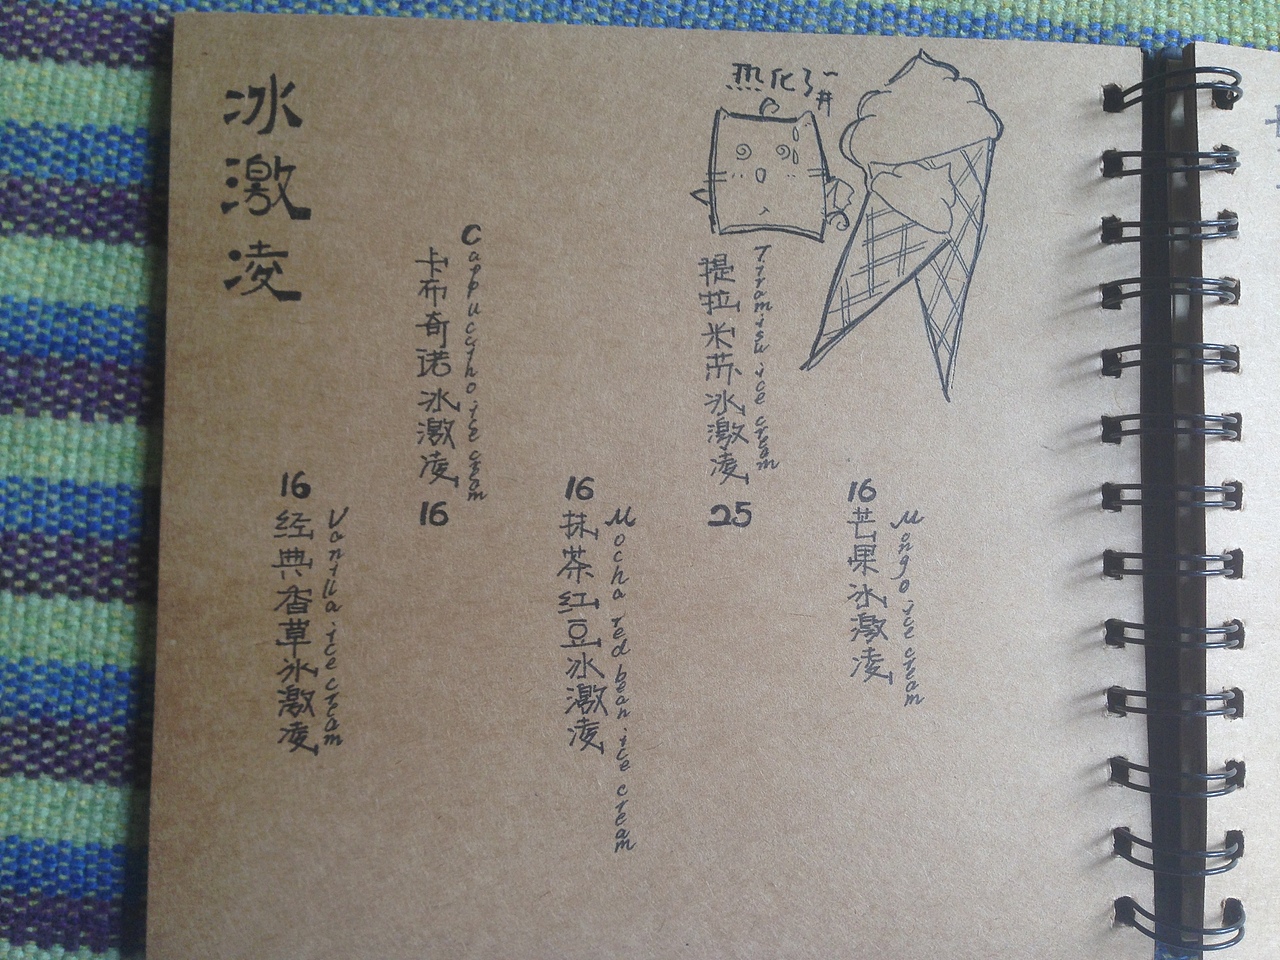 冰激凌
16
经典香草冰激凌
Vanilla ice cream
卡布奇诺冰激凌
Cappuccino ice cream
16
16
抹茶红豆冰激凌
Mocha red bean ice cream
热化了~
提拉米苏冰激凌
Tiramisu ice cream
25
16
芒果冰激凌
Mango ice cream